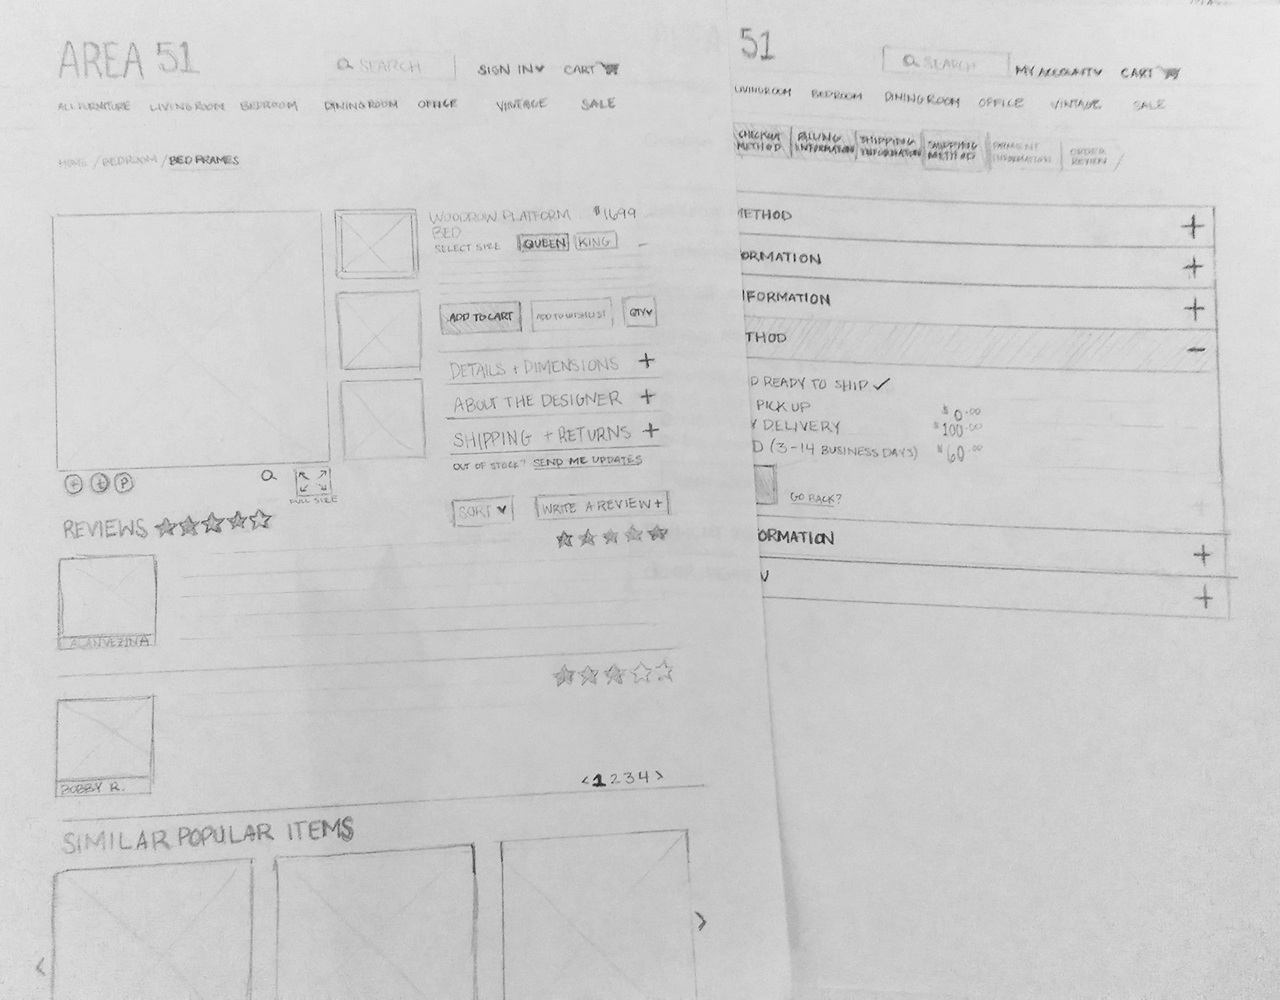 AREA 51
SEARCH
SIGN IN
CART
ALL FURNITURE LIVING ROOM BEDROOM DINING ROOM OFFICE VINTAGE SALE
HOME / BEDROOM / BED FRAMES
WOODROW PLATFORM $1699
BED
SELECT SIZE QUEEN KING
ADD TO CART ADD TO WISHLIST QTY
DETAILS + DIMENSIONS +
ABOUT THE DESIGNER +
SHIPPING + RETURNS +
OUT OF STOCK? SEND ME UPDATES
FULL SIZE
SORT WRITE A REVIEW +
REVIEWS
ALAN VEZINA
BOBBY R.
< 1 2 3 4 >
SIMILAR POPULAR ITEMS
< >
51
SEARCH
MY ACCOUNT
CART
LIVING ROOM BEDROOM DINING ROOM OFFICE VINTAGE SALE
CHECKOUT METHOD
BILLING INFORMATION
SHIPPING INFORMATION
SHIPPING METHOD
PAYMENT INFORMATION
ORDER REVIEW
METHOD +
ORMATION +
FORMATION +
THOD -
D READY TO SHIP ✓
PICK UP $0.00
Y DELIVERY $100.00
D (3-14 BUSINESS DAYS) $60.00
GO BACK?
ORMATION +
W +